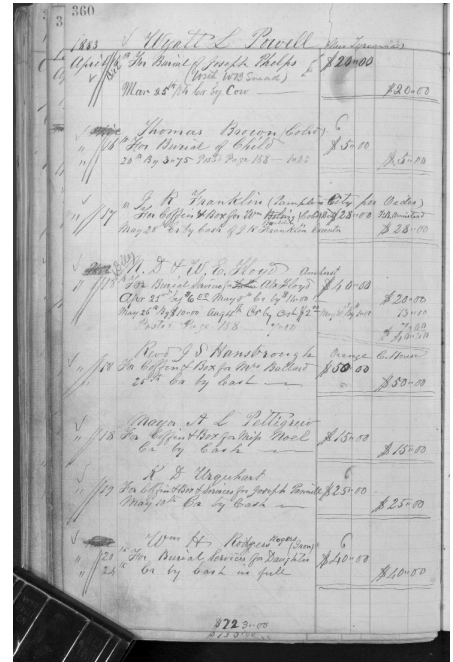 360
3
1883 Wyatt L Powell
April For Burial of Joseph Phelps $20=00
(Write WB Snead)
Mar 25th /84 Cr by Cow $20=00
Thomas Brown (Cold)
" 16 " For Burial of Child $5=00
20th By 3=75 Page 158 $5=00
" J. R. Franklin (Pamplin City per Order)
" 17 For Coffin & Box for Wm $28=00
May 28th Cr by Cash of J R Franklin $28=00
N. D. & W. E. Floyd Amherst
" 18 For Burial Services for Floyd $40=00
Apr 25th By $ May Cr by $10=00 $20=00
May 26th By $10=00 Augth Cr by Cash
Page 158
Revd J S Hansbrough Orange C. House
" 18 For Coffin & Box for Mrs Ballard $50=00
25th Cr by Cash $50=00
Major A L Pettigrew
" 18 For Coffin & Box for Miss Noel $15=00
Cr by Cash $15=00
R D Urquhart
" 19 For Coffin & Box & Services for Joseph $25=00
May 10th Cr by Cash $25=00
Wm H Rodgers
" 20 " For Burial Services for Daughter $40=00
" 24 " Cr by Cash in full $40=00
$223=00